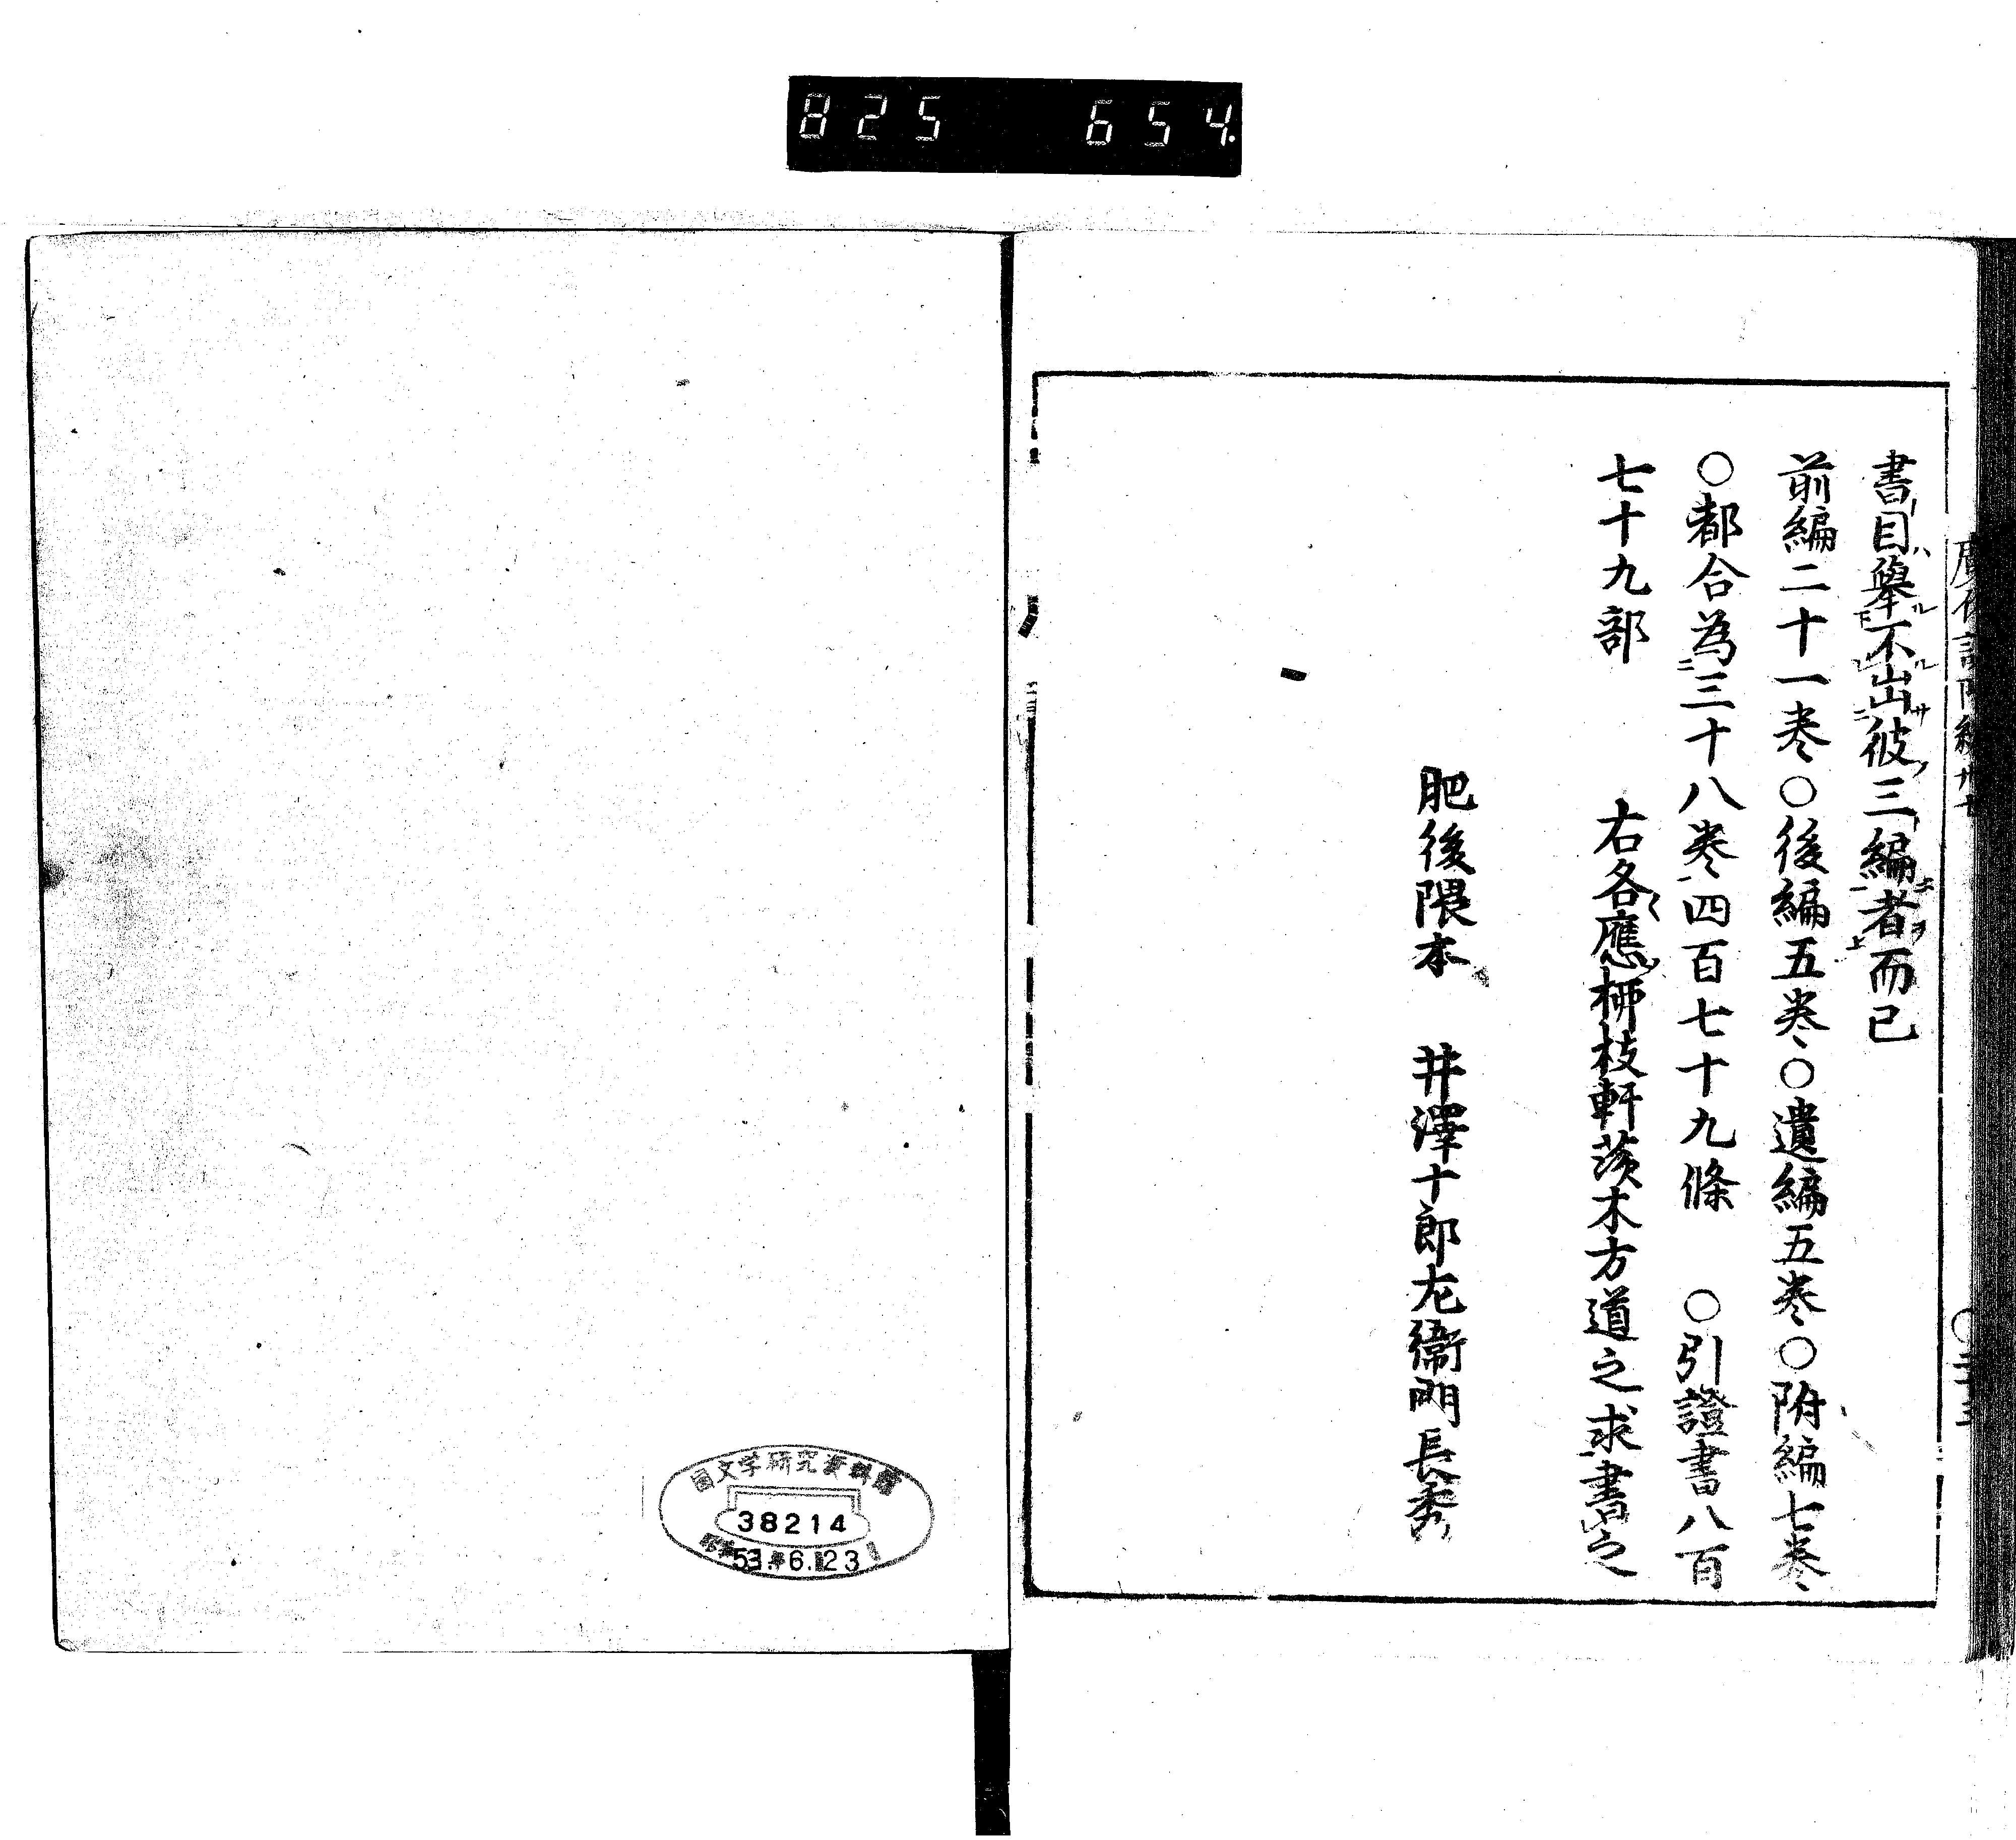 825 654.
書目ハ舉ルハ不ル出サ彼ノ三編ニ者ヲ而已
前編二十一巻○後編五巻○遺編五巻○附編七巻
○都合為三十八巻四百七十九條 ○引證書八百
七十九部 右各應柳枝軒茨木方道之求書之
肥後隈本 井澤十郎左衛門長秀
國文学研究資料館
38214
53.6.23